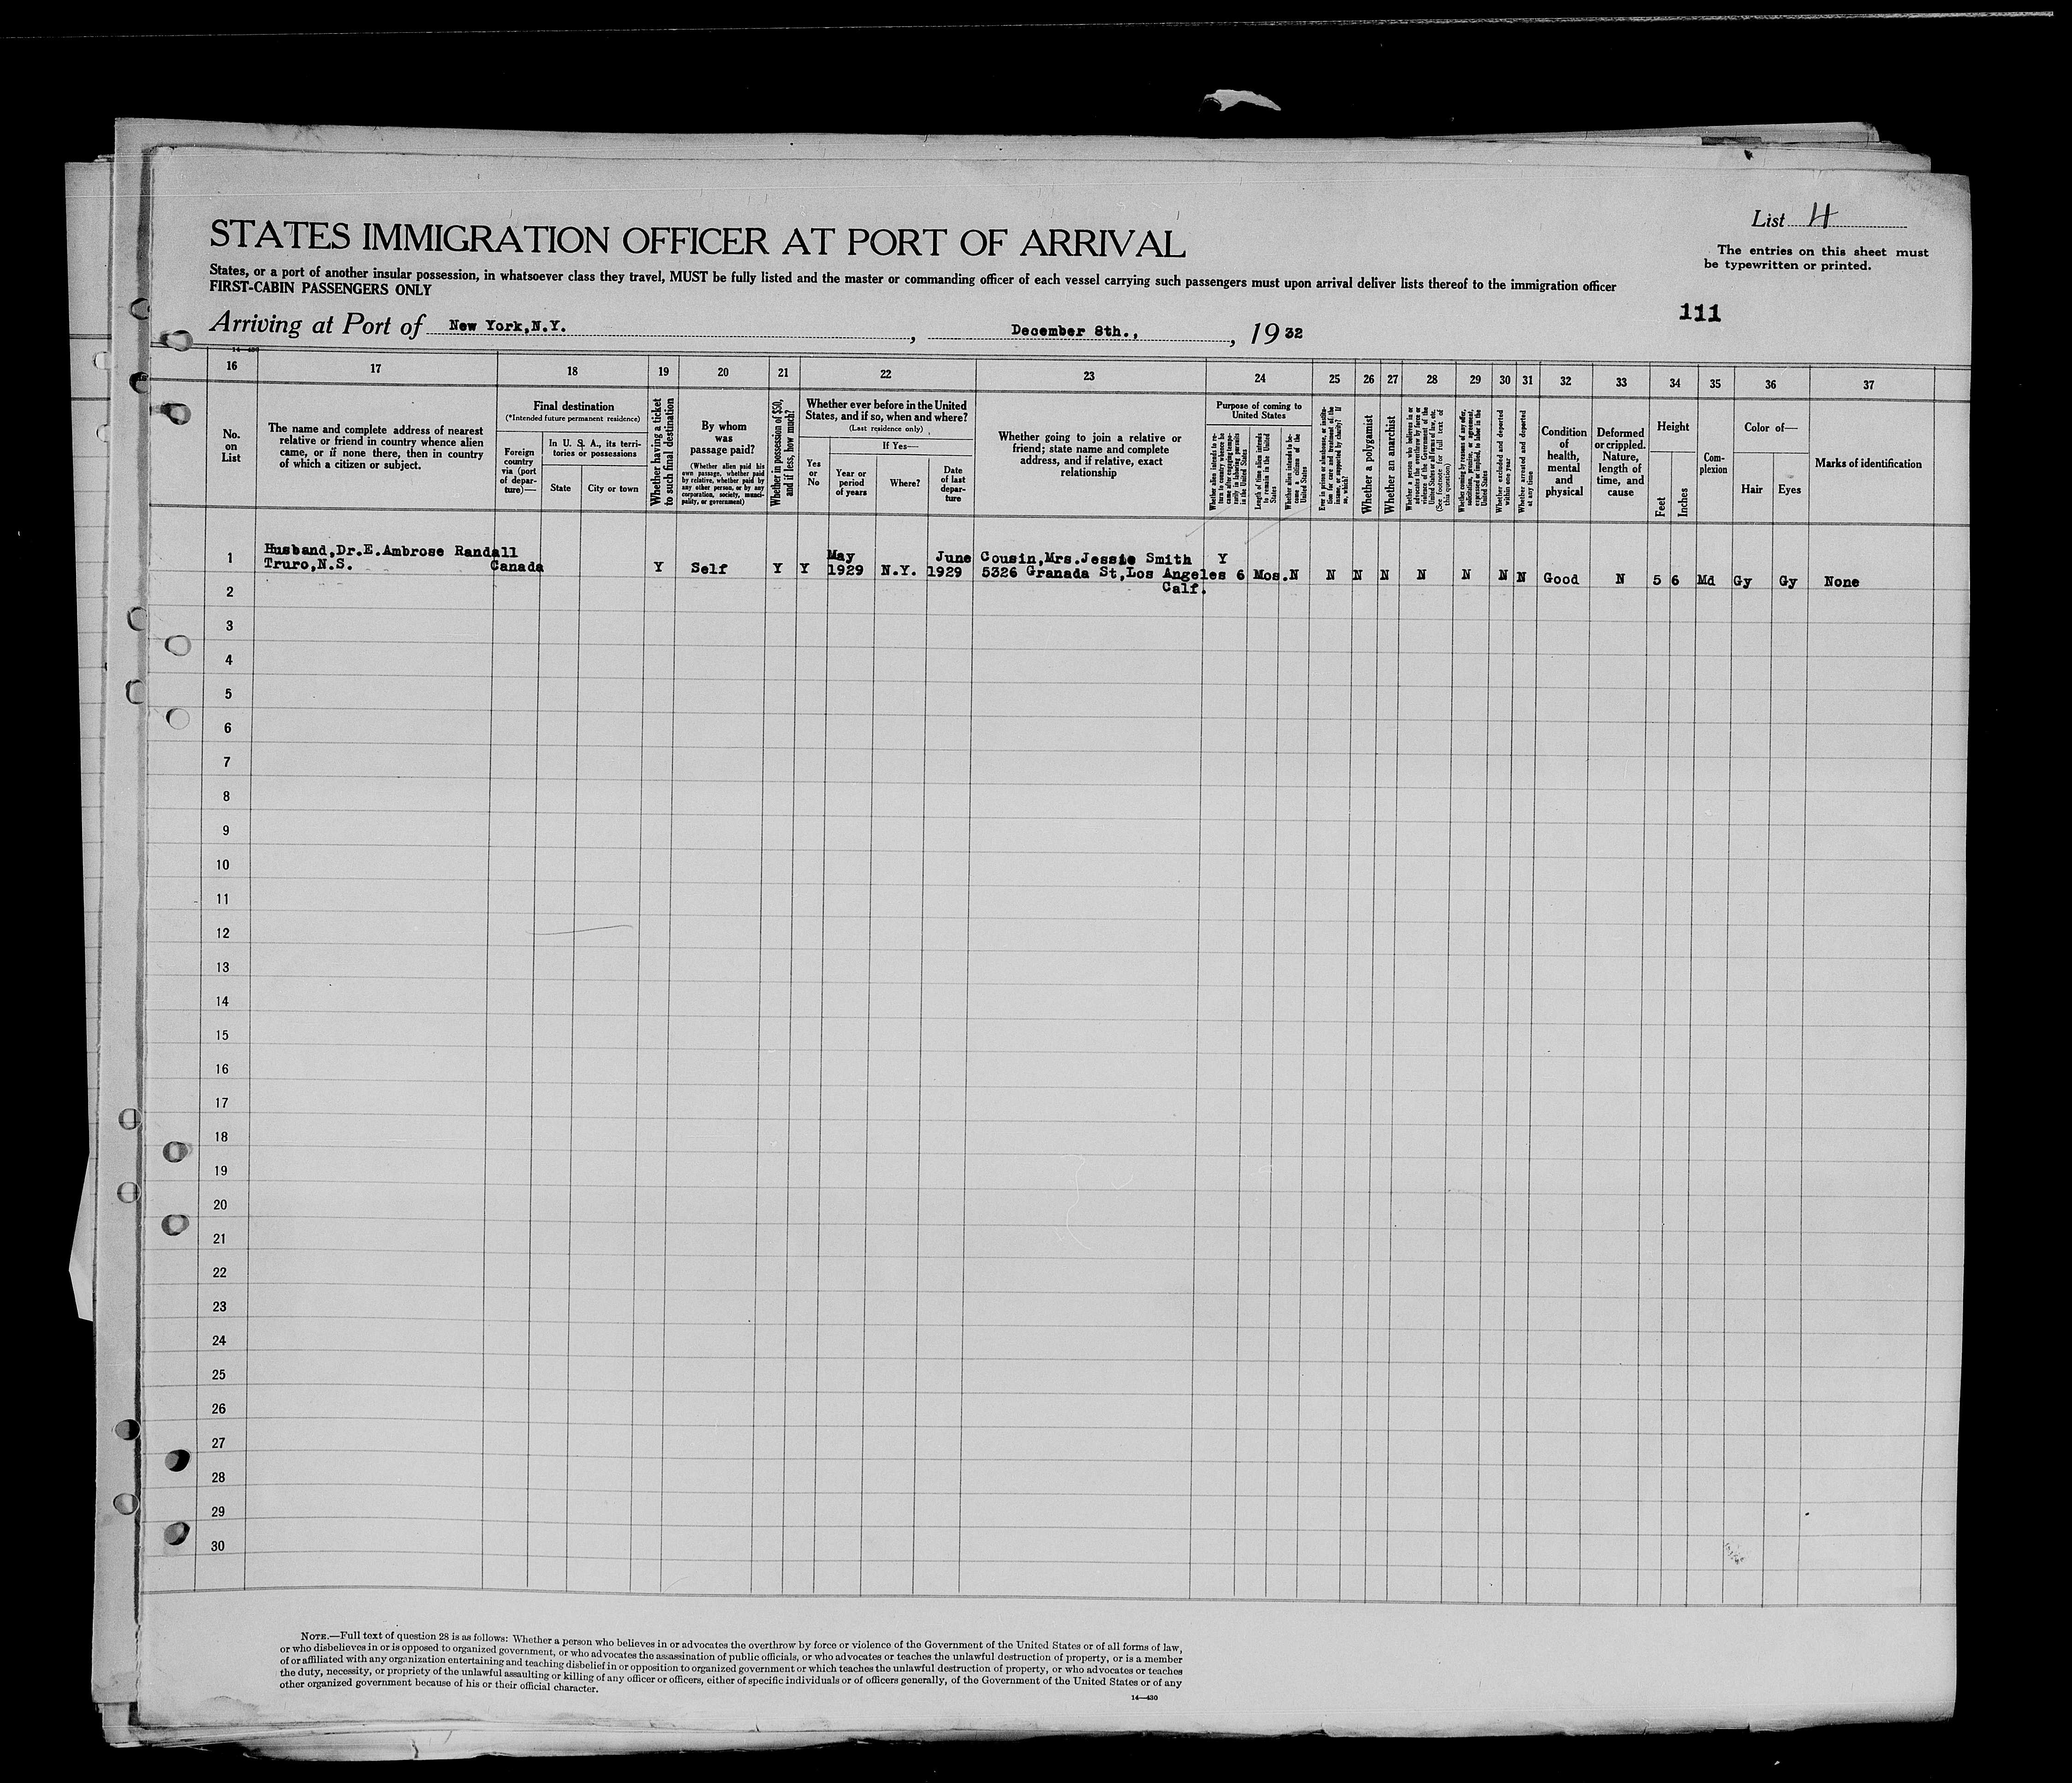 List 4
STATES IMMIGRATION OFFICER AT PORT OF ARRIVAL
The entries on this sheet must
be typewritten or printed.
States, or a port of another insular possession, in whatsoever class they travel, MUST be fully listed and the master or commanding officer of each vessel carrying such passengers must upon arrival deliver lists thereof to the immigration officer
FIRST-CABIN PASSENGERS ONLY
111
Arriving at Port of New York,N.Y. , December 8th., , 19 32
14—430
16 17 18 19 20 21 22 23 24 25 26 27 28 29 30 31 32 33 34 35 36 37
No.
on
List
The name and complete address of nearest
relative or friend in country whence alien
came, or if none there, then in country
of which a citizen or subject.
Final destination
(*Intended future permanent residence)
Foreign
country
via (port
of depar-
ture)—
In U. S. A., its terri-
tories or possessions
State
City or town
Whether having a ticket
to such final destination
By whom
was
passage paid?
(Whether alien paid his
own passage, whether paid
by relative, whether paid by
any other person, or by any
corporation, society, munici-
pality, or government)
Whether in possession of $50,
and if less, how much?
Whether ever before in the United
States, and if so, when and where?
(Last residence only)
Yes
or
No
If Yes—
Year or
period
of years
Where?
Date
of last
depar-
ture
Whether going to join a relative or
friend; state name and complete
address, and if relative, exact
relationship
Purpose of coming to
United States
Whether alien intends to re-
turn to country whence he
came after engaging tempo-
rarily in laboring pursuits
in the United States
Length of time alien intends
to remain in the United
States
Whether alien intends to be-
come a citizen of the
United States
Ever in prison or almshouse, or institu-
tion for care and treatment of the
insane, or supported by charity? If
so, which?
Whether a polygamist
Whether an anarchist
Whether a person who believes in or
advocates the overthrow by force or
violence of the Government of the
United States or all forms of law, etc.
(See footnote for full text of
this question)
Whether coming by reasons of any offer,
solicitation, promise, or agreement,
expressed or implied, to labor in the
United States
Whether excluded and deported
within one year
Whether arrested and deported
at any time
Condition
of
health,
mental
and
physical
Deformed
or crippled.
Nature,
length of
time, and
cause
Height
Feet
Inches
Com-
plexion
Color of—
Hair
Eyes
Marks of identification
1 Husband,Dr.E.Ambrose Randall May June Cousin,Mrs.Jessie Smith Y
Truro,N.S. Canada Y Self Y Y 1929 N.Y. 1929 5326 Granada St,Los Angeles 6 Mos. N N N N N N N N Good N 5 6 Md Gy Gy None
Calf.
2
3
4
5
6
7
8
9
10
11
12
13
14
15
16
17
18
19
20
21
22
23
24
25
26
27
28
29
30
NOTE.—Full text of question 28 is as follows: Whether a person who believes in or advocates the overthrow by force or violence of the Government of the United States or of all forms of law,
or who disbelieves in or is opposed to organized government, or who advocates the assassination of public officials, or who advocates or teaches the unlawful destruction of property, or is a member
of or affiliated with any organization entertaining and teaching disbelief in or opposition to organized government or which teaches the unlawful destruction of property, or who advocates or teaches
the duty, necessity, or propriety of the unlawful assaulting or killing of any officer or officers, either of specific individuals or of officers generally, of the Government of the United States or of any
other organized government because of his or their official character.
14—430